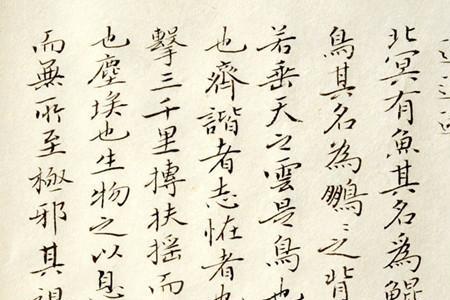 北冥有魚其名為鯤
鳥其名為鵬〻之背
若垂天之雲是鳥也
也齊諧者志怪者也
擊三千里摶扶摇而
也塵埃也生物之以息
而無所至極邪其視